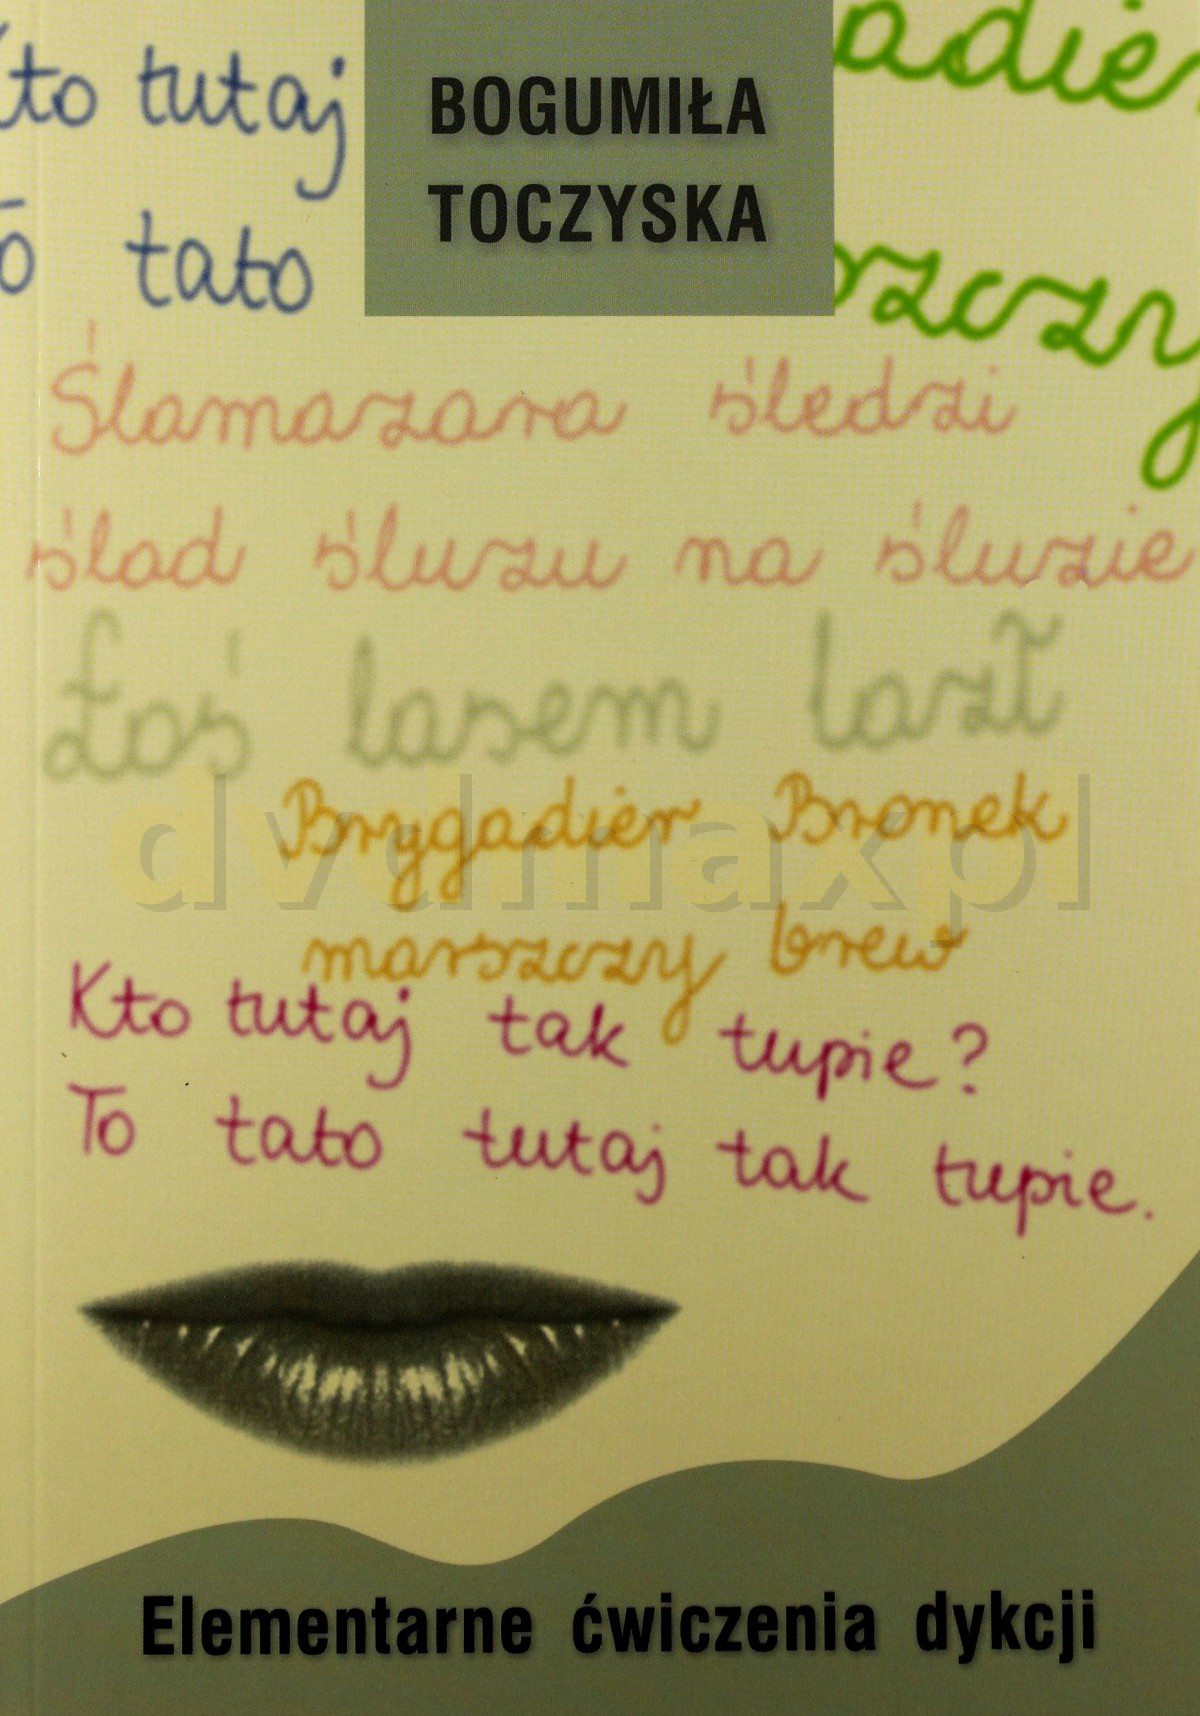 BOGUMIŁA
TOCZYSKA
Kto tutaj
To tato
adier
szczy
Ślamazara śledzi
ślad śluzu na śluzie
Łoś lasem lazł
dvdmax.pl
Brygadier Bronek
marszczy brew
Kto tutaj tak tupie?
To tato tutaj tak tupie.
Elementarne ćwiczenia dykcji